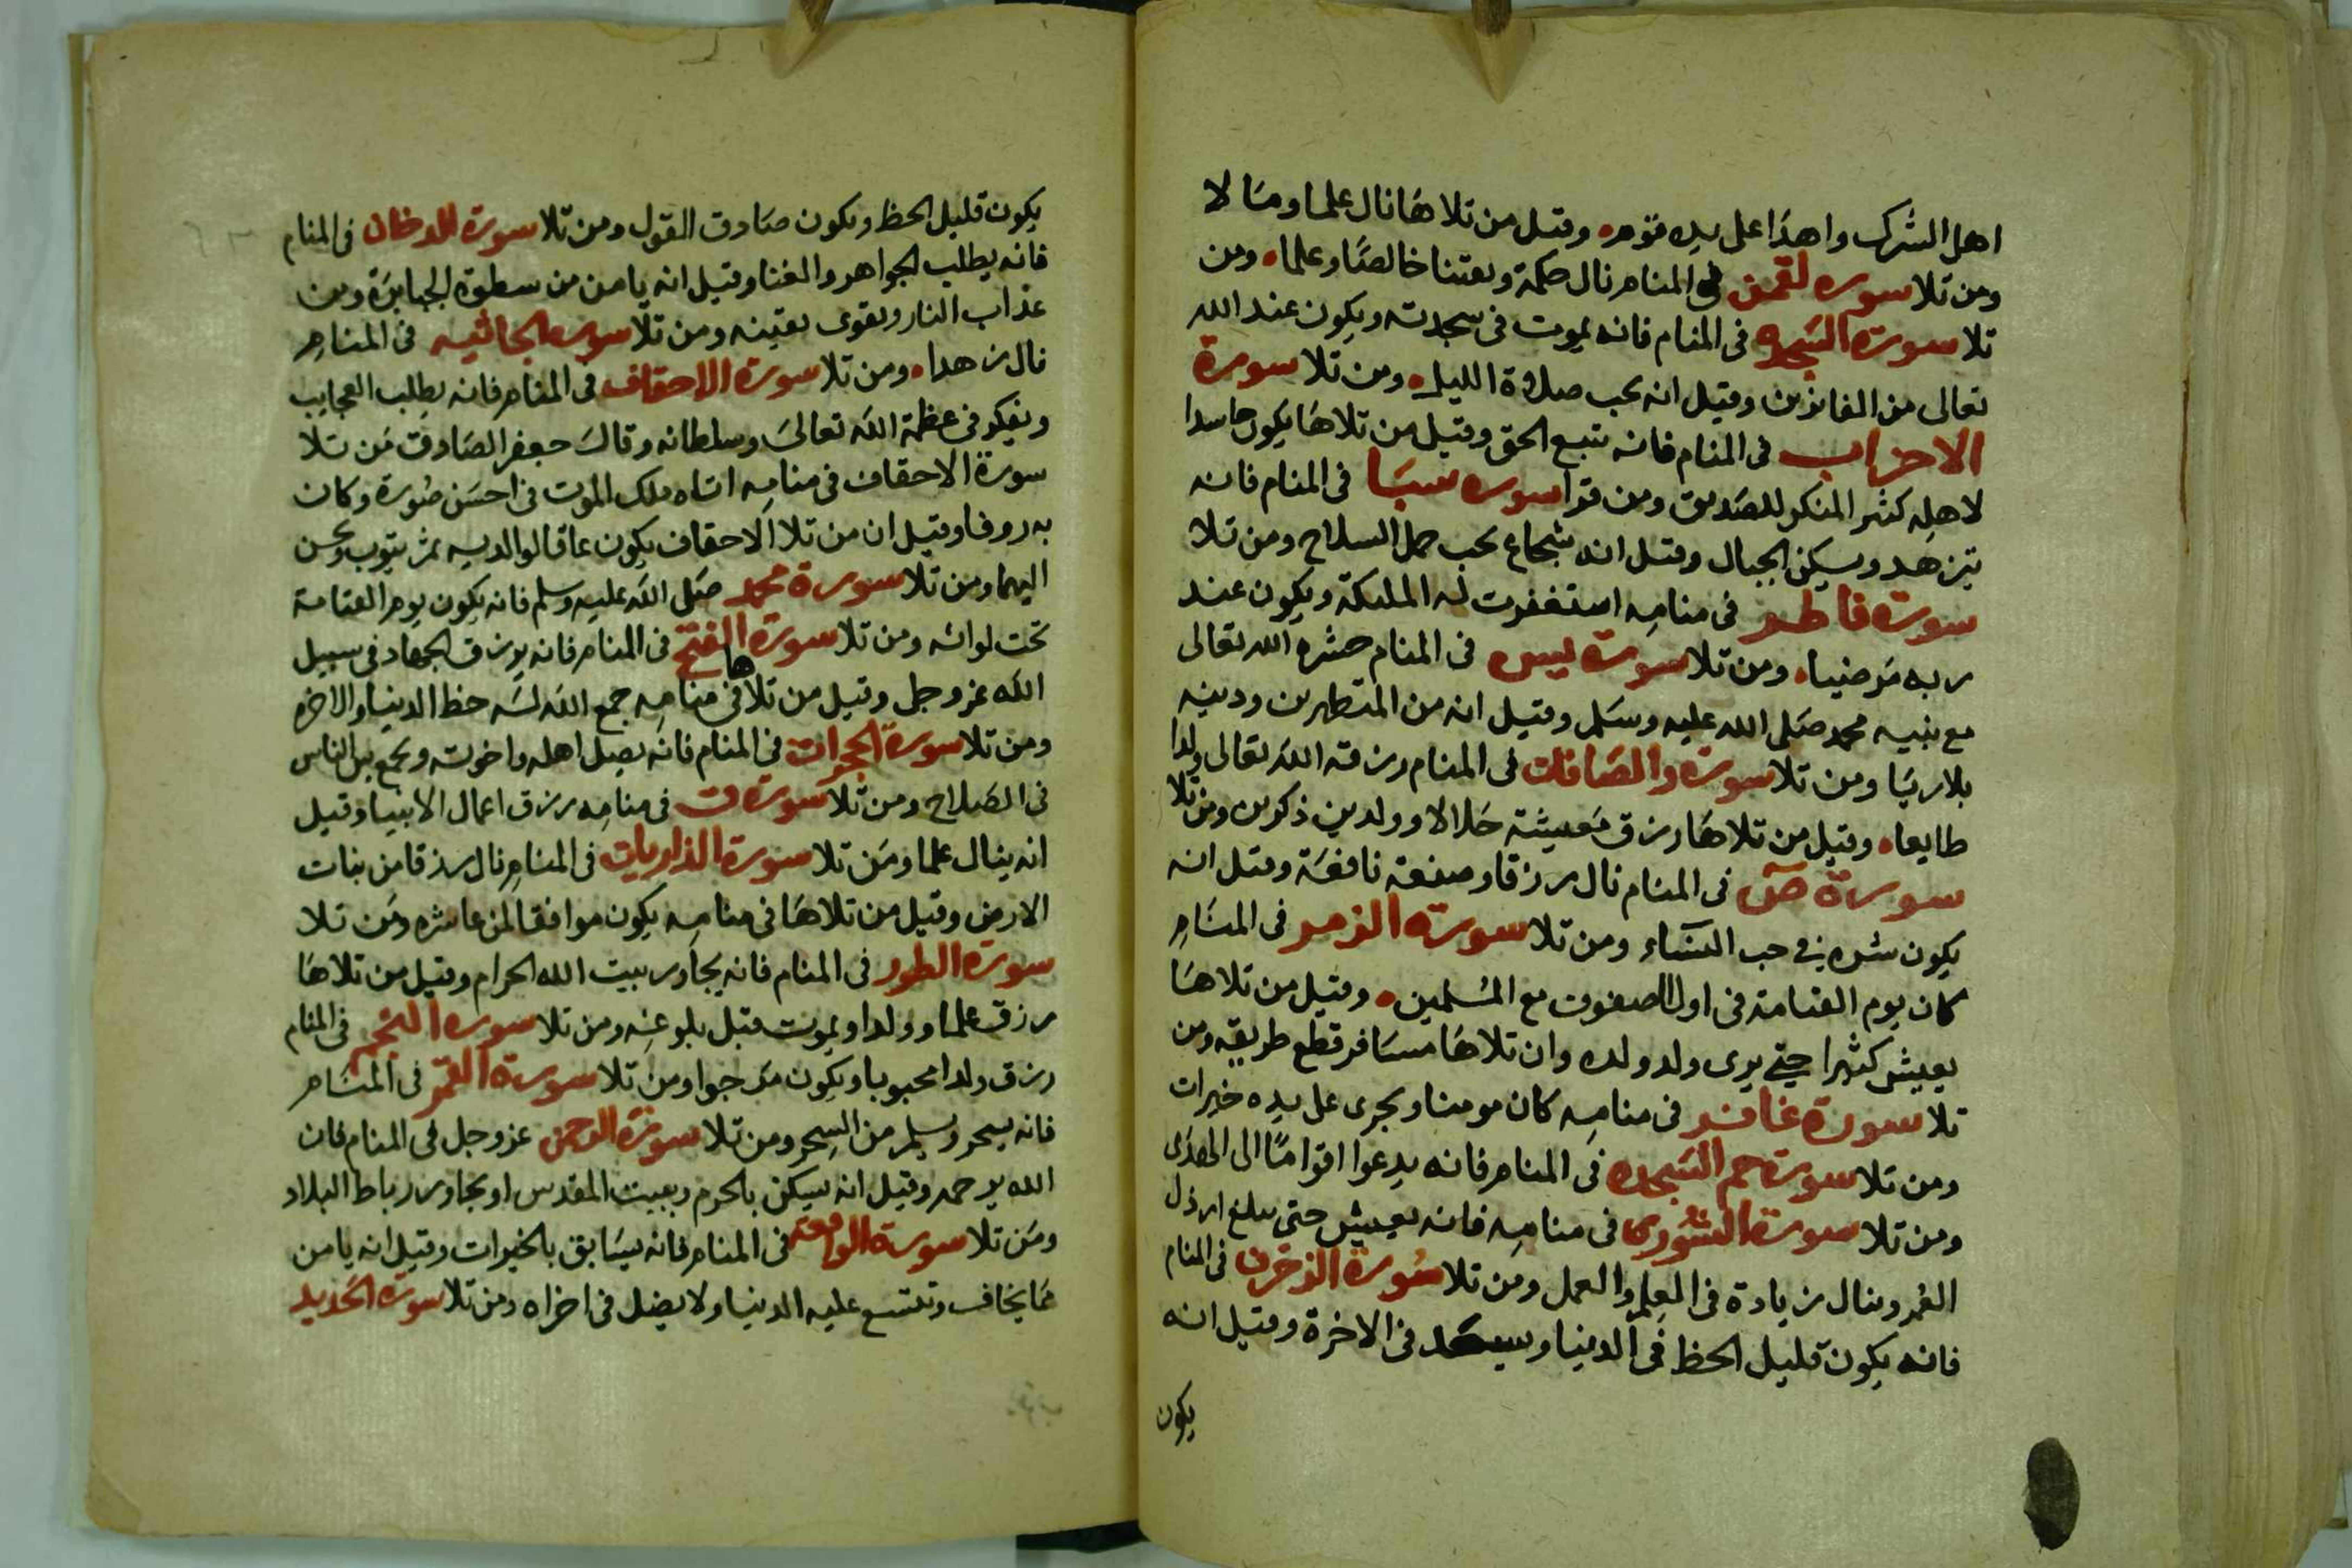 اهل الشرك واهدا على يده قوم وقيل من تلاها نال علما ومالا
ومن تلا سوره لقمن فى المنام نال حكمة ويقينا خالصا وعلما ومن
تلا سورة السجده فى المنام فانه يموت فى سجدته ويكون عند الله
تعالى من الفائزين وقيل انه يحب صلوة الليل ومن تلا سورة
الاحزاب فى المنام فانه يتبع الحق وقيل من تلاها يكون حاسدا
لاهله كثير المنكر للصديق ومن قرا سوره سبا فى المنام فانه
يتزهد ويسكن الجبال وقيل انه شجاع يحب حمل السلاح ومن تلا
سورة فاطر فى منامه استغفرت له المليكة ويكون عند
ربه مرضيا ومن تلا سورة يس فى المنام حشره الله تعالى
مع نبيه محمد صلى الله عليه وسلم وقيل انه من المتطهرين ودينه
بلا ريا ومن تلا سورة والصافات فى المنام رزقه الله تعالى ولدا
طايعا وقيل من تلاها رزق معيشة حلالا وولدين ذكورين ومن تلا
سورة ص فى المنام نال رزقا وصنعة نافعة وقيل انه
يكون شره فى حب النساء ومن تلا سورة الزمر فى المنام
كان يوم القيامة فى اول الصفوف مع المسلمين وقيل من تلاها
يعيش كثيرا حتى يرى ولد ولده وان تلاها مسافر قطع طريقه ومن
تلا سورة غافر فى منامه كان مومنا ويجرى على يده خيرات
ومن تلا سورة حم السجده فى المنام فانه يدعوا اقواما الى الهدى
ومن تلا سورة الشورى فى منامه فانه يعيش حتى يبلغ ارذل
العمر وينال زيادة فى العلم والعمل ومن تلا سورة الزخرف فى المنام
فانه يكون قليل الحظ فى الدنيا وسيعد فى الاخرة وقيل انه
يكون
يكون قليل الحظ ويكون صادق القول ومن تلا سورة الدخان فى المنام
فانه يطلب الجواهر والغنا وقيل انه يامن من سطوة الجبابرة ومن
عذاب النار ويقوى يقينه ومن تلا سوره الجاثيه فى المنام
نال زهدا ومن تلا سورة الاحقاف فى المنام فانه يطلب العجايب
ويفكر فى عظمة الله تعالى وسلطانه وقال جعفر الصادق من تلا
سورة الاحقاف فى منامه اتاه ملك الموت فى احسن صورة وكان
به روفا وقيل ان من تلا الاحقاف يكون عاقا لوالديه ثم يتوب ويحسن
اليهما ومن تلا سورة محمد صلى الله عليه وسلم فانه يكون يوم القيامة
تحت لوائه ومن تلا سورة الفتح فى المنام فانه يرزق الجهاد فى سبيل
الله عز وجل وقيل من تلاها فى منامه جمع الله له حظ الدنيا والاخره
ومن تلا سورة الحجرات فى المنام فانه يصل اهله واخوته ويجمع بين الناس
فى الصلاح ومن تلا سورة ق فى منامه رزق اعمال الانبيا وقيل
انه ينال علما ومن تلا سورة الذاريات فى المنام نال رزقا من نبات
الارض وقيل من تلاها فى منامه يكون موافقا لمن عاشره ومن تلا
سورة الطور فى المنام فانه يجاور بيت الله الحرام وقيل من تلاها
رزق علما وولدا ويموت قبل بلوغه ومن تلا سوره النجم فى المنام
رزق ولدا محبوبا ويكون مرجوا ومن تلا سورة القمر فى المنام
فانه يسحر ويسلم من السحر ومن تلا سورة الرحمن عز وجل فى المنام فان
الله يرحمه وقيل انه يسكن بالحرم وبيت المقدس او يجاور رباط البلاد
ومن تلا سورة الواقعه فى المنام فانه يسابق بالخيرات وقيل انه يامن
مما يخاف وتتسع عليه الدنيا ولا يضل فى اخراه ومن تلا سورة الحديد